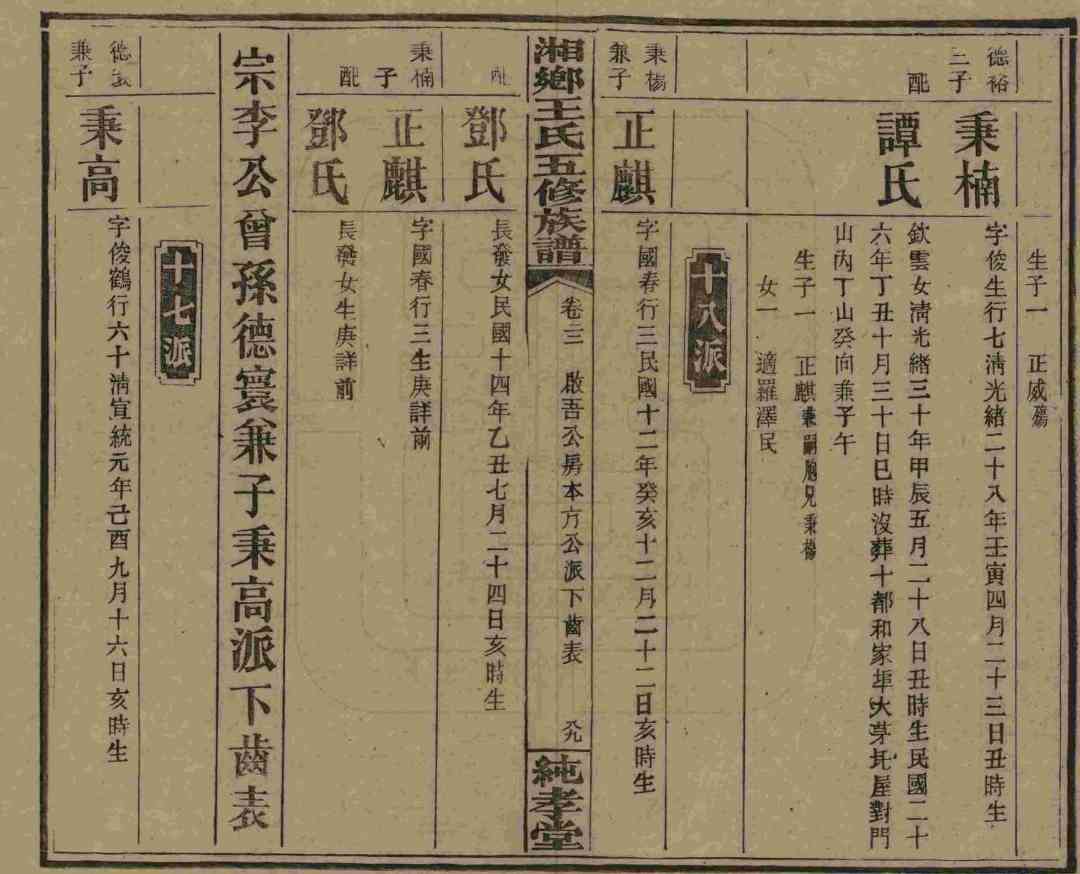 生子一 正威殤
德裕
三子
秉楠
字俊生行七清光緒二十八年壬寅四月二十三日丑時生
配
譚氏
欽雲女清光緒三十年甲辰五月二十八日丑時生民國二十
六年丁丑十月三十日巳時沒葬十都和家埠大茅圫屋對門
山內丁山癸向兼子午
生子一 正麒兼嗣胞兄秉楊
女一 適羅澤民
十八派
秉楊
兼子
正麒
字國春行三民國十二年癸亥十二月二十二日亥時生
湘鄉王氏五修族譜
卷三 啟吾公房本方公派下齒表
純孝堂
配
鄧氏
長發女民國十四年乙丑七月二十四日亥時生
秉楠
子
正麒
字國春行三生庚詳前
配
鄧氏
長發女生庚詳前
宗李公曾孫德寰兼子秉高派下齒表
十七派
德寰
兼子
秉高
字俊鶴行六十清宣統元年己酉九月十六日亥時生